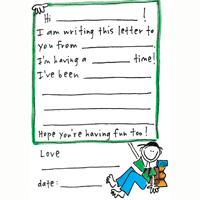 Hi ____________ !
I am writing this letter to
you from ____________.
I'm having a ________ time!
I've been ____________
____________________
____________________
____________________
Hope you're having fun too!
Love
____________
date: ________